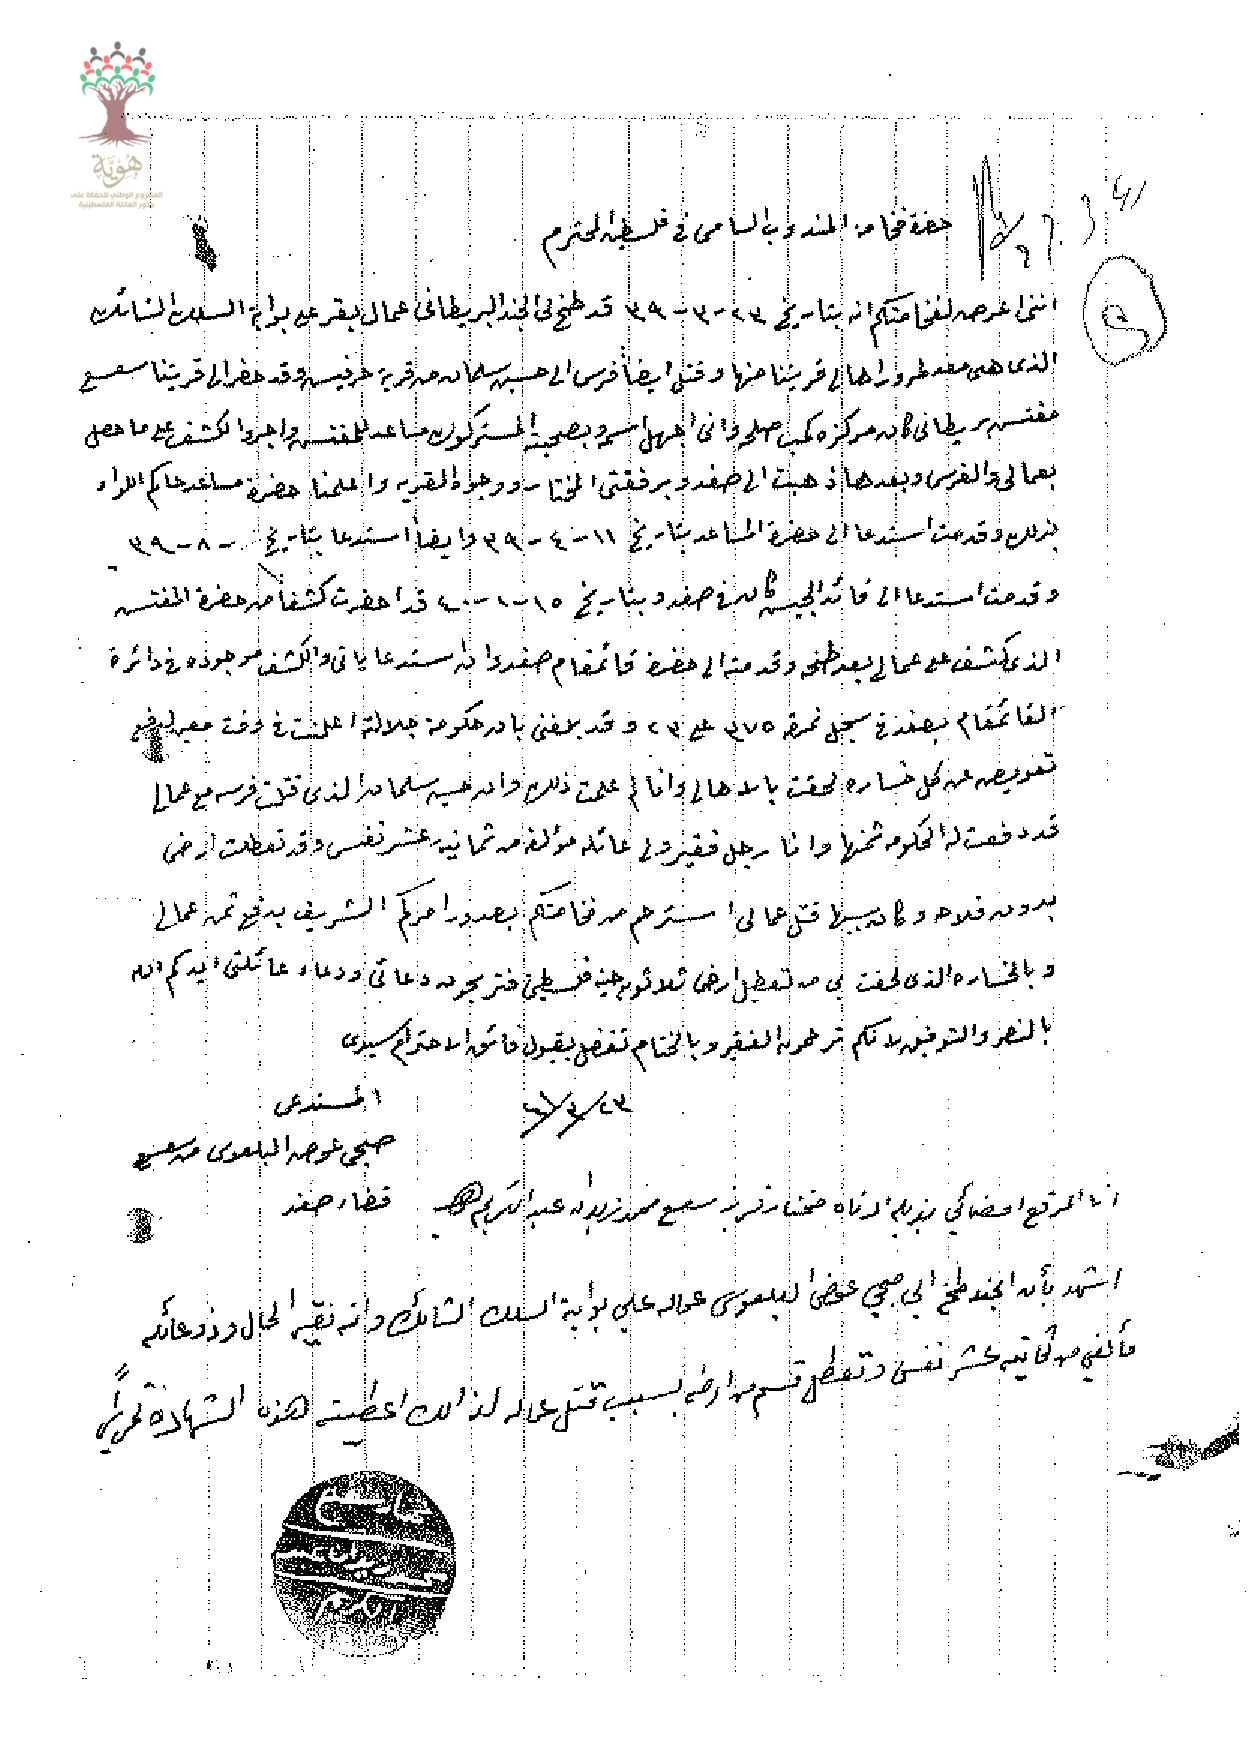 هُوِيَّة
المشروع الوطني للحفاظ على
جذور العائلة الفلسطينية
حضرة فخامة المندوب السامي في فلسطين المحترم
انني اعرض لفخامتكم انه بتاريخ ٢٣-٣-٣٩ قد طخ لي الجند البريطاني عمال بقر على بوابة السلك الشائك
الذي هي معد لمرور اهالي قريتنا منها وقتل ايضاً فرس الى حسين سلمان من قرية وقد حضر الى قريتنا سعسع
مفتش بريطاني كان مركزه كمب صلحه واني اجهل اسمه وبصحبته المستركوك مساعد للمفتش واجروا الكشف على ما حصل
بعمالي والفرس وبعدها ذهبت الى صفد وبرفقتي المختار ووجوه القريه واعلمنا حضرة مساعد حاكم اللواء
بذلك وقدمت استدعا الى حضرة المساعد بتاريخ ١١-٤-٣٩ وايضاً استدعا بتاريخ ٠-٨-٣٩
وقدمت استدعا الى قائد الجيش كان في صفد وبتاريخ ١٥-١-٤٠ قد احضرت كشفاً من حضرة المفتش
الذي كشف على عمالي بعد طخه وقدمته الى حضرة قائمقام صفد وان استدعاياتي والكشف موجوده في دائرة
القائمقام بصفد في سجل نمرة ٣٧٥ على ٢٣ وقد بلغني بان حكومة جلالة اعلنت في وقت معين لدفع
تعويض عن كل خساره لحقت بالاهالي وانا لم علمت ذلك وان حسين سلمان الذي قتلت فرسه مع عمالي
قد دفعت له الحكومه ثمنها وانا رجل فقير ولي عائله مؤلفة من ثمانية عشر نفس وقد تعطلت ارضي
بدون فلاحه وكان سببها قتل عمالي استرحم من فخامتكم بصدور امركم الشريف بدفع ثمن عمالي
وبالخساره الذي لحقت بي من تعطيل ارضي ثلاثون جنيه فلسطيني فتربحون دعائي ودعاء عائلتي ايدكم الله
بالنصر والتوفيق لانكم ترحمون الفقير وبالختام تفضل بقبول فائق الاحترام سيدي
٢٣/٣/٤١
المستدعي
صبحي عوض البلعوسي من سعسع
قضاء صفد
انا الموقع امضائي بذيله ادناه مختار قرية سعسع محمد زيدان عبد الكريم
اشهد بأن الجند طخ الى صبحي عوض البلعوسي عماله على بوابة السلك الشائك وانه فقير الحال وذو عائله
مألفي من ثمانيه عشر نفس وتعطل قسم من ارضه بسبب قتل عماله لذالك اعطيته هذه الشهادة تحريراً